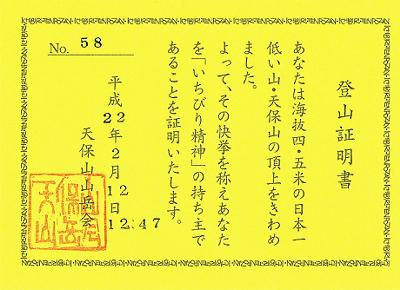 No. 58
登山証明書
あなたは海抜四・五米の日本一
低い山・天保山の頂上をきわめ
ました。
よって、その快挙を称えあなた
を「いちびり精神」の持ち主で
あることを証明いたします。
平成22年2月12日
12:47
天保山山岳会